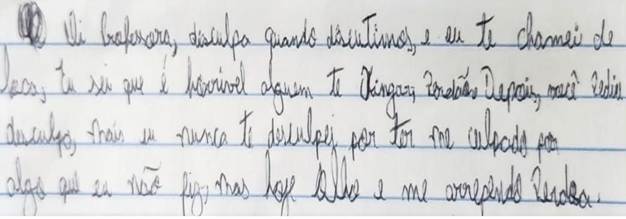 Oi Professora, disculpa quando discutimos, e eu te chamei de
loca, eu sei que é horrivel alguem te xingar, Perdão. Depois, você pediu
desculpa, mais eu nunca te desculpei por ter me culpado por
algo que eu não fiz, mas hoje olho e me arrependo Perdoa.